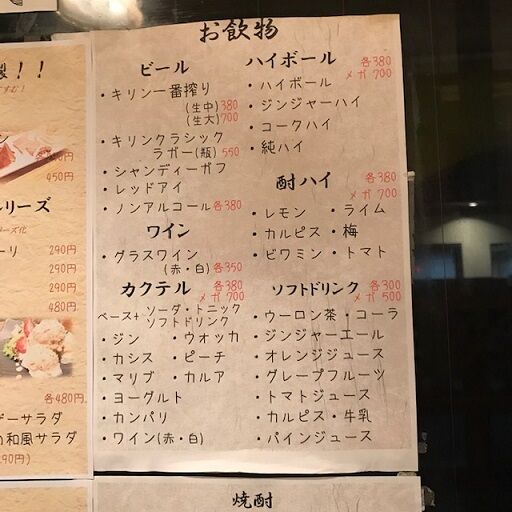 製！！
ン
450円
リーズ
290円
290円
290円
480円
各480円
サラダ
和風サラダ
お飲物
ビール
・キリン一番搾り
(生中)380
(生大)700
・キリンクラシック
ラガー(瓶)550
・シャンディーガフ
・レッドアイ
・ノンアルコール 各380
ワイン
・グラスワイン
(赤・白)各350
カクテル 各380
メガ700
ベース+ソーダ・トニック
ソフトドリンク
・ジン ・ウオッカ
・カシス ・ピーチ
・マリブ ・カルア
・ヨーグルト
・カンパリ
・ワイン(赤・白)
ハイボール 各380
メガ700
・ハイボール
・ジンジャーハイ
・コークハイ
・純ハイ
酎ハイ 各380
メガ700
・レモン ・ライム
・カルピス ・梅
・ビワミン ・トマト
ソフトドリンク 各300
メガ500
・ウーロン茶 ・コーラ
・ジンジャーエール
・オレンジジュース
・グレープフルーツ
・トマトジュース
・カルピス ・牛乳
・パインジュース
焼酎